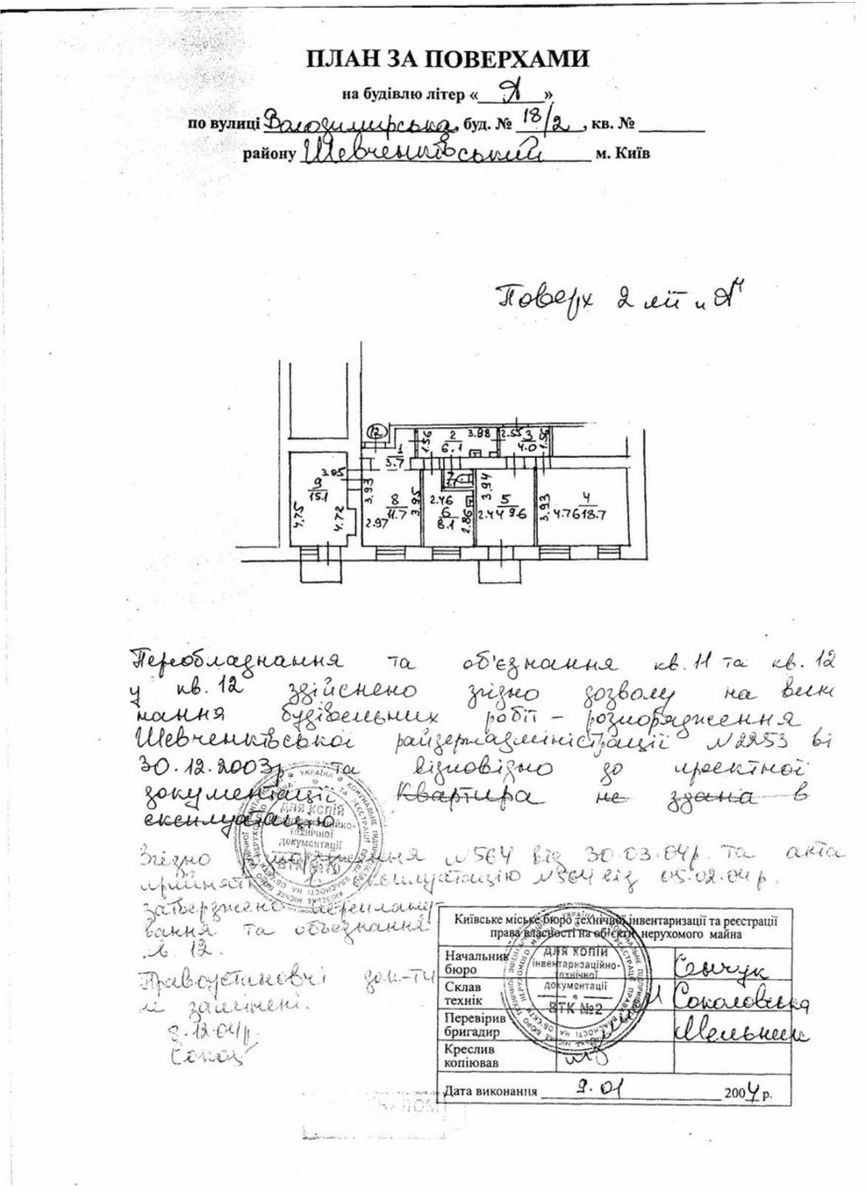 ПЛАН ЗА ПОВЕРХАМИ
на будівлю літер « А »
по вулиці Володимирська, буд. № 18/2, кв. №
району Шевченківський м. Київ
Поверх 2 літ
12
1
3.7
1.56
2
6.1
3.98
2.55
3
4.0
1.56
9
15.1
3.05
4.75
4.72
3.93
8
11.7
3.95
2.97
7
2.46
6
8.1
2.86
3.94
5
9.6
2.44
3.93
4
18.7
4.76
Переобладнання та об'єднання кв. 11 та кв. 12
у кв. 12 здійснено згідно дозволу на вик
нання будівельних робіт – розпорядження
Шевченківської райдержадміністрації №2253 ві
30.12.2003р. та відповідно до проектної
документації Квартира не здана в
експлуатацію
Згідно розпорядження №564 від 30.03.04р. та акта
прийняття в експлуатацію №564 від 05.02.04р.
затверджено переплану-
вання та об'єднання
12.
Правоустановчі док-ти
не замінені.
12.04р.
УКРАЇНА
ДЛЯ КОПІЙ
інвентаризаційно-
технічної
документації
Київське міське бюро технічної інвентаризації та реєстрації
права власності на об'єкти нерухомого майна
Начальник
бюро
Сенчук
Склав
технік
Соколовська
Перевірив
бригадир
Мельник
Креслив
копіював
ДЛЯ КОПІЙ
інвентаризаційно-
технічної
документації
ВТК №2
Дата виконання 9.01 2004 р.